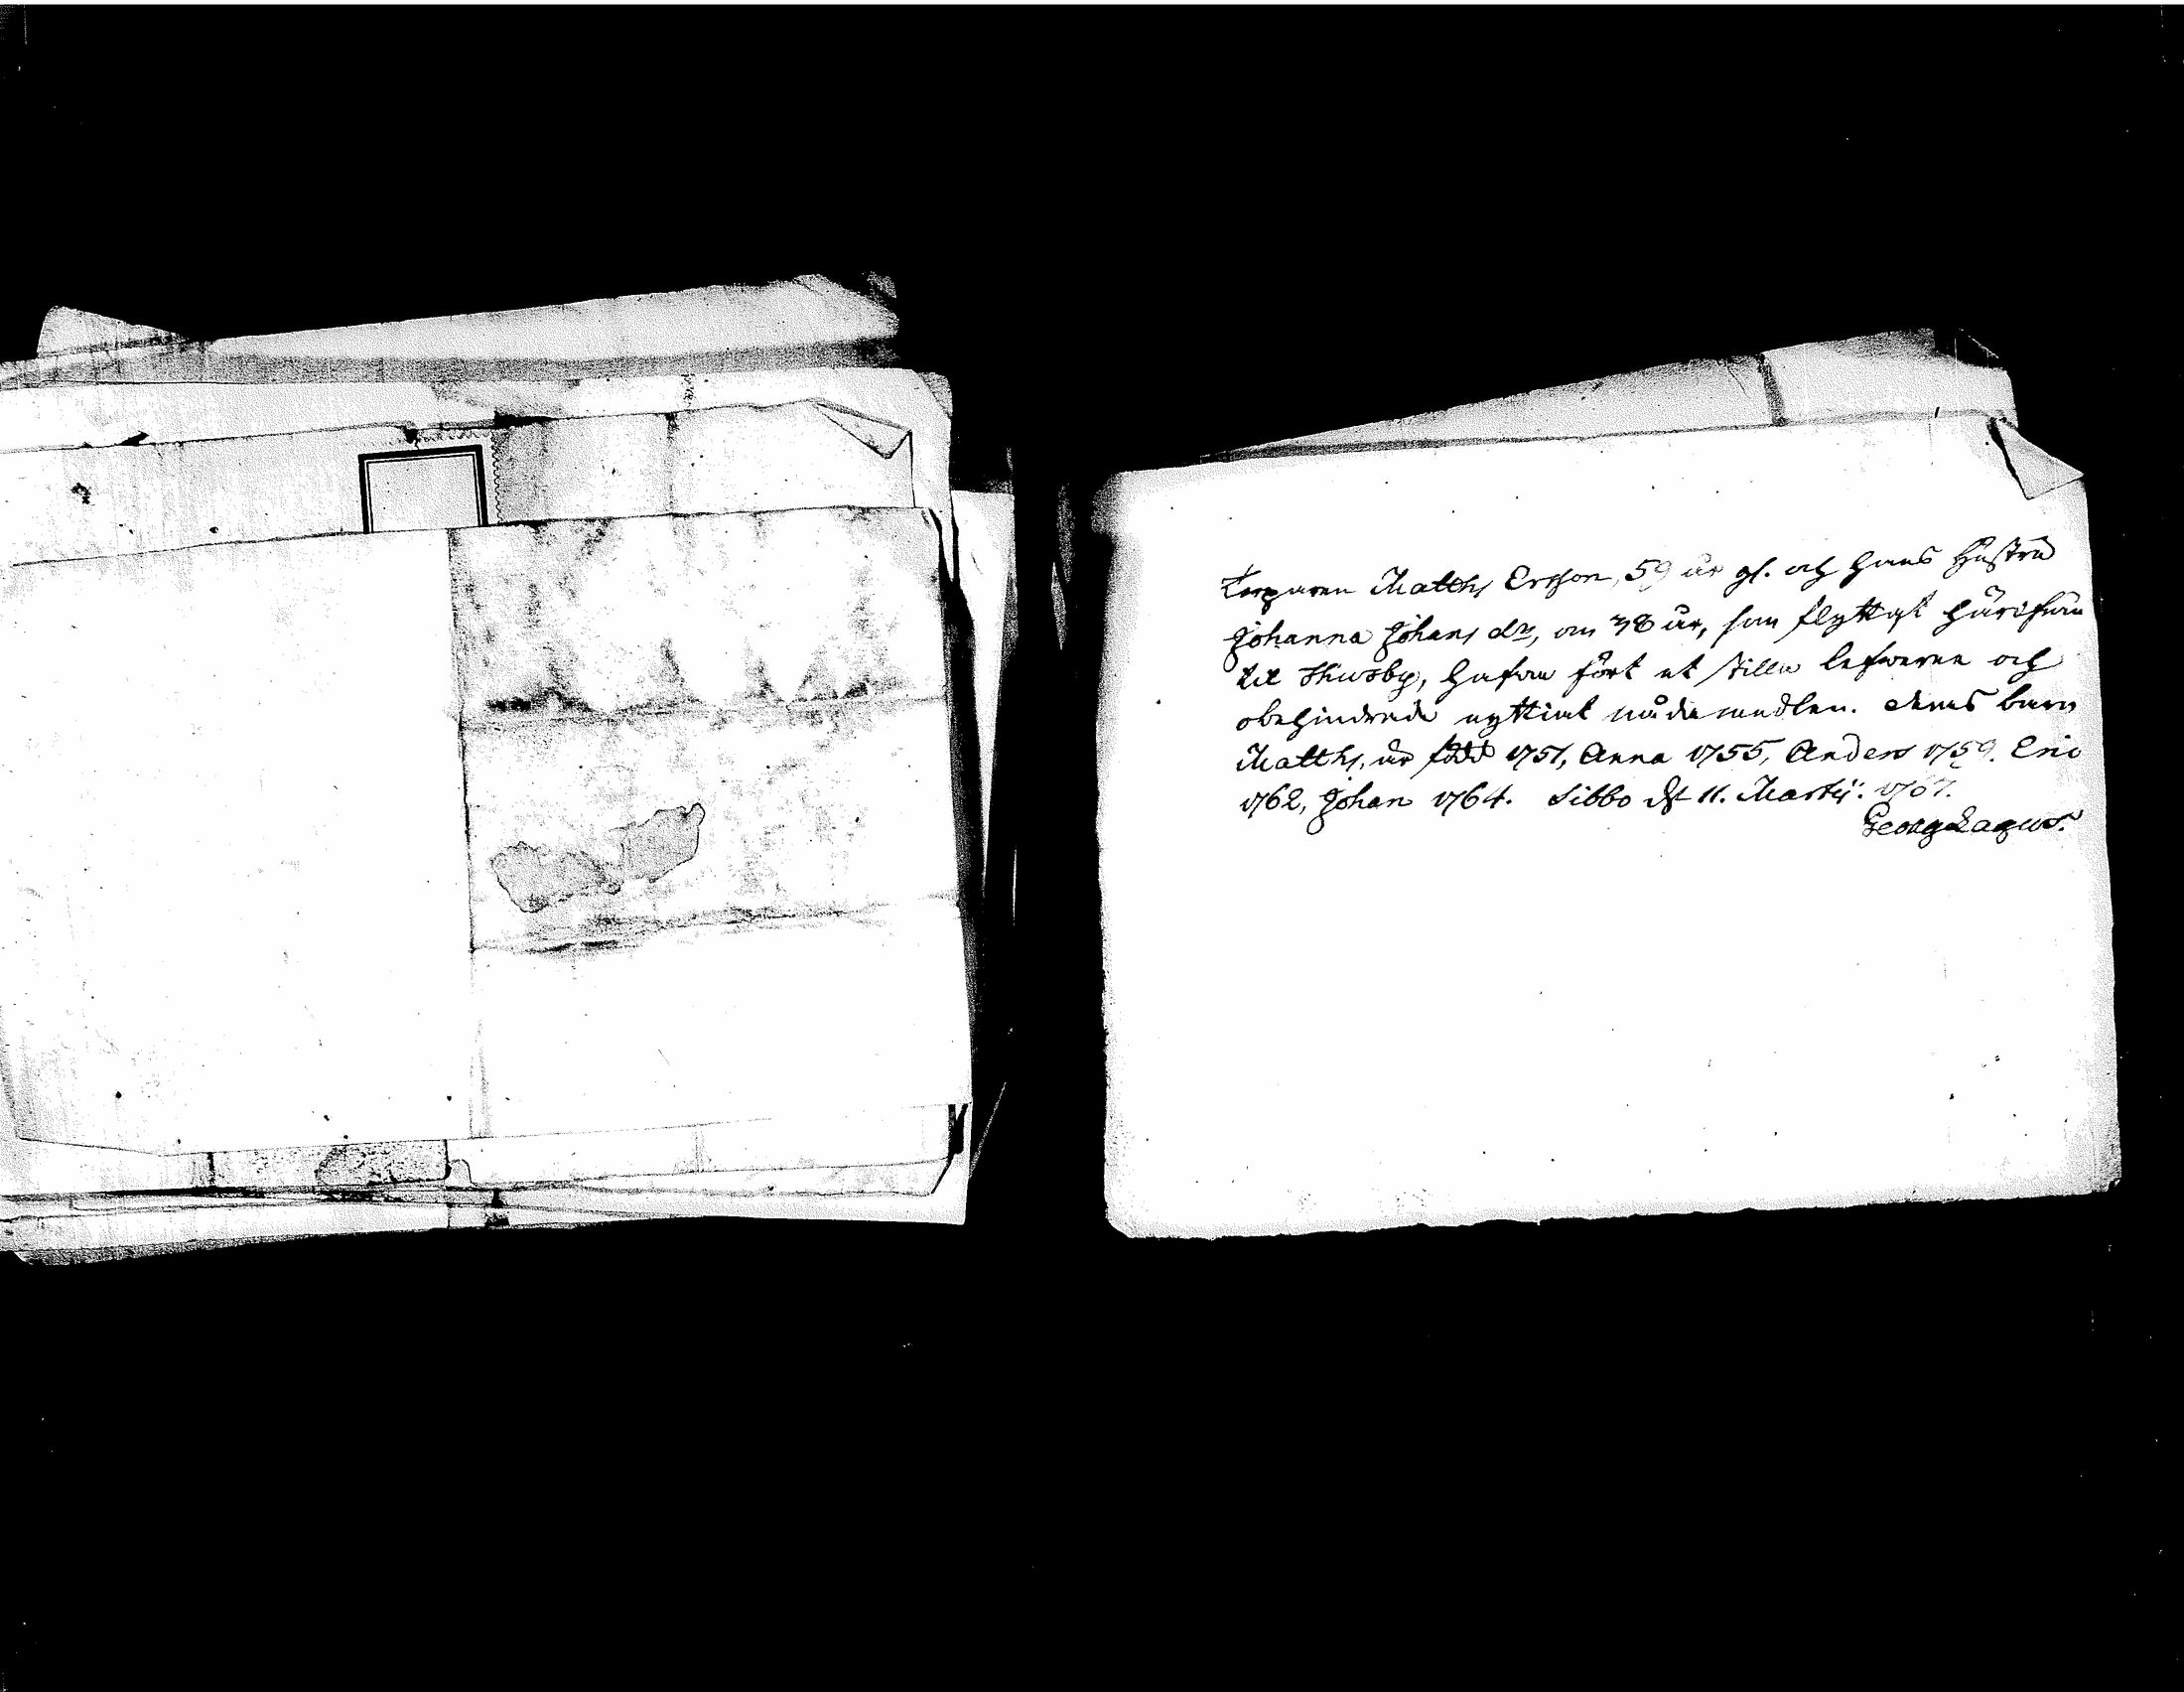 Torparen Matths Ersson, 59 år gl. och hans Hustru
Johanna Johans dr, om 38 år, som flyttat härifrån
til Thusby, hafwa fört et stilla lefwerne och
obehindrade nyttiat nådemedlen. deras barn
Matths, är född 1751, Anna 1755, Anders 1759. Eric
1762, Johan 1764. Sibbo d 11. Martij. 1767.
Georg Lagus.